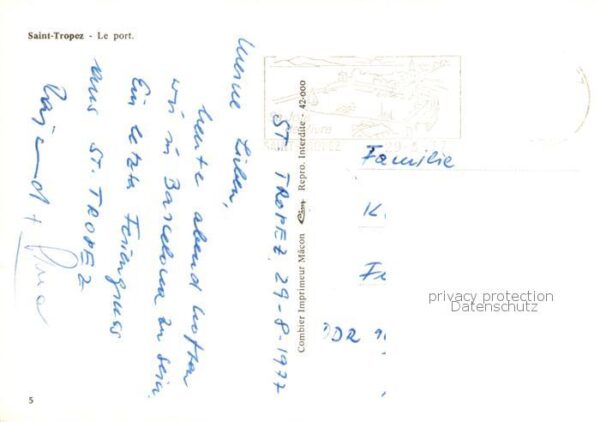 Saint-Tropez - Le port.
ST. TROPEZ, 29-8-1977
Meine Lieben,
heute abend hoffen
wir in Barcelona zu sein.
Ein letzter Feriengruss
aus ST. TROPEZ
Combier Imprimeur Mâcon Cim Repro. Interdite - 42-000
SAINT-TROPEZ
Familie
K
F
privacy protection
Datenschutz
DDR
5